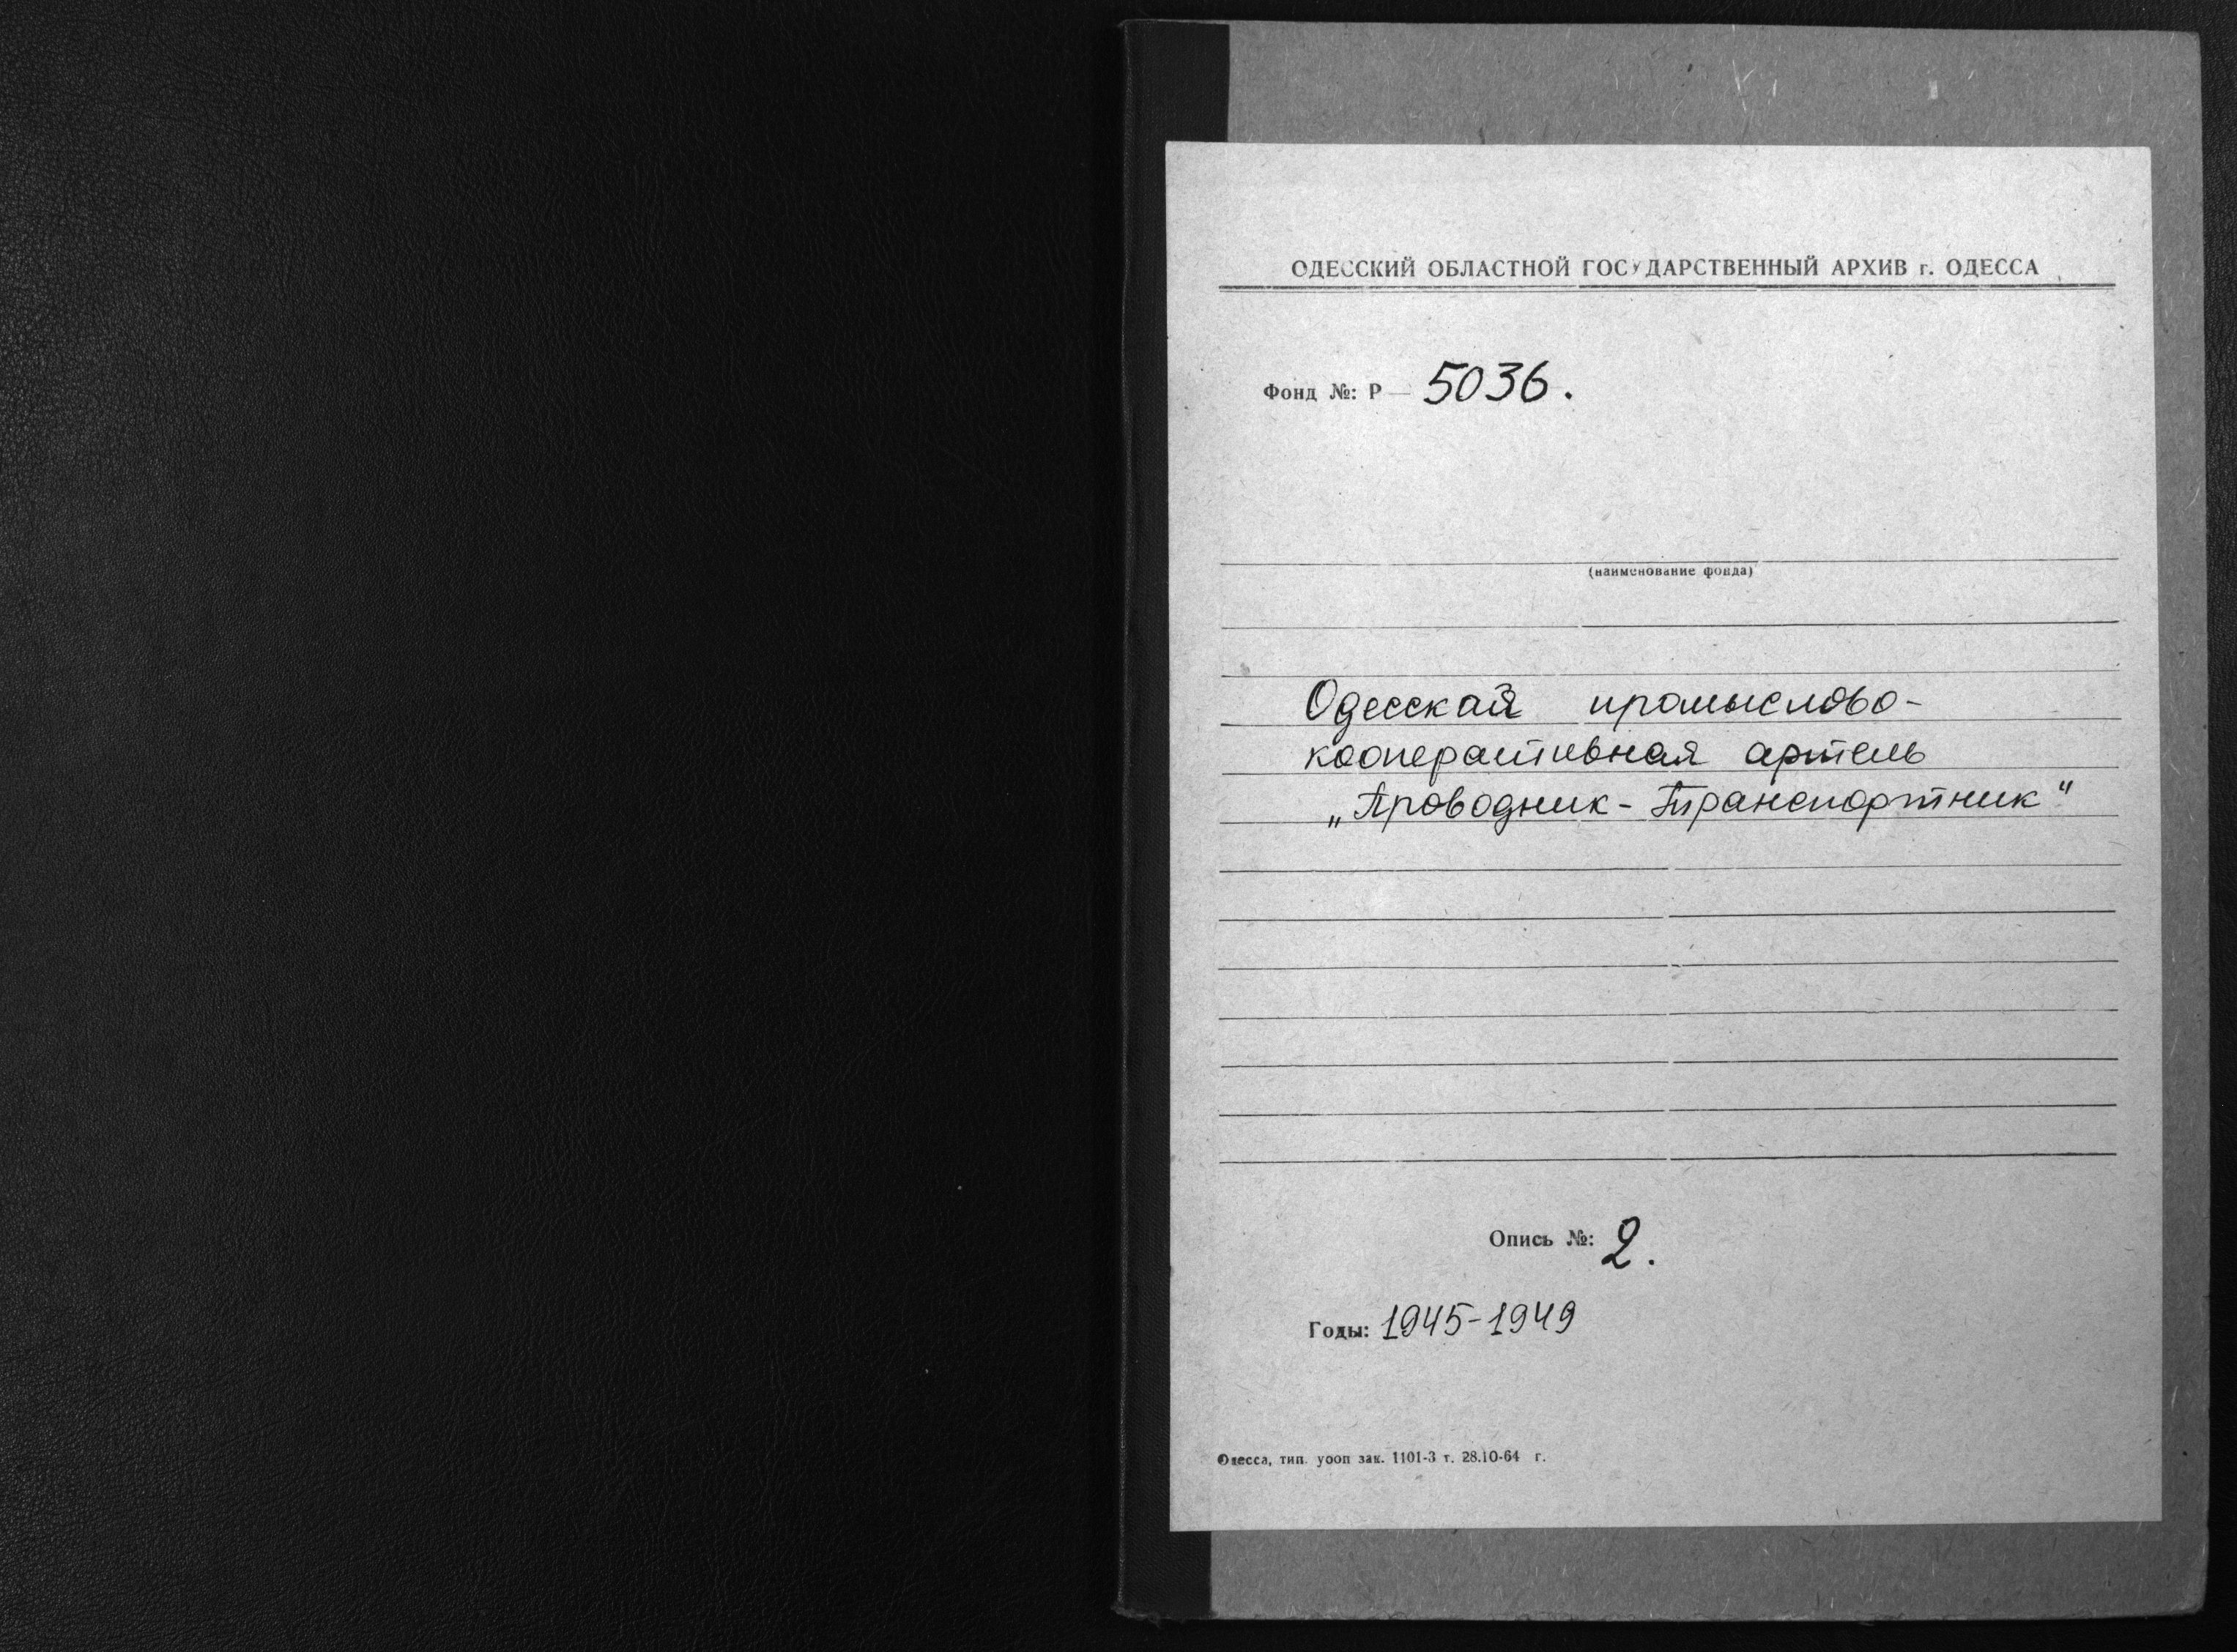 ОДЕССКИЙ ОБЛАСТНОЙ ГОСУДАРСТВЕННЫЙ АРХИВ г. ОДЕССА
Фонд №: Р — 5036.
(наименование фонда)
Одесская промыслово-
кооперативная артель
„Проводник - Транспортник"
Опись №: 2.
Годы: 1945-1949
Одесса, тип. уооп зак. 1101-3 т. 28.10-64 г.